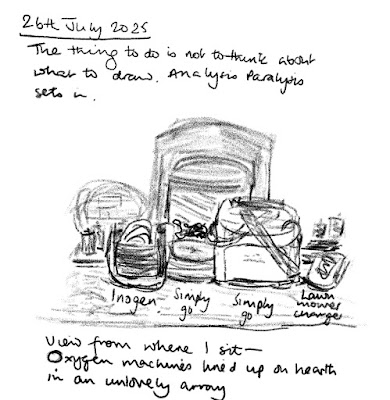 26th July 2025
The thing to do is not to think about
what to draw. Analysis Paralysis
sets in.
Inogen
Simply
go
Simply
go
Lawn
mower
charger
View from where I sit—
Oxygen machines lined up on hearth
in an unlovely array